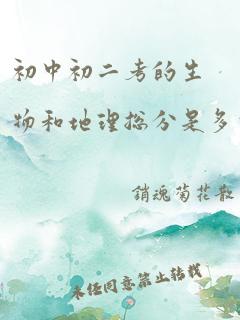 初中初二考的生
物和地理总分是多
銷魂菊花散
未经同意禁止转载